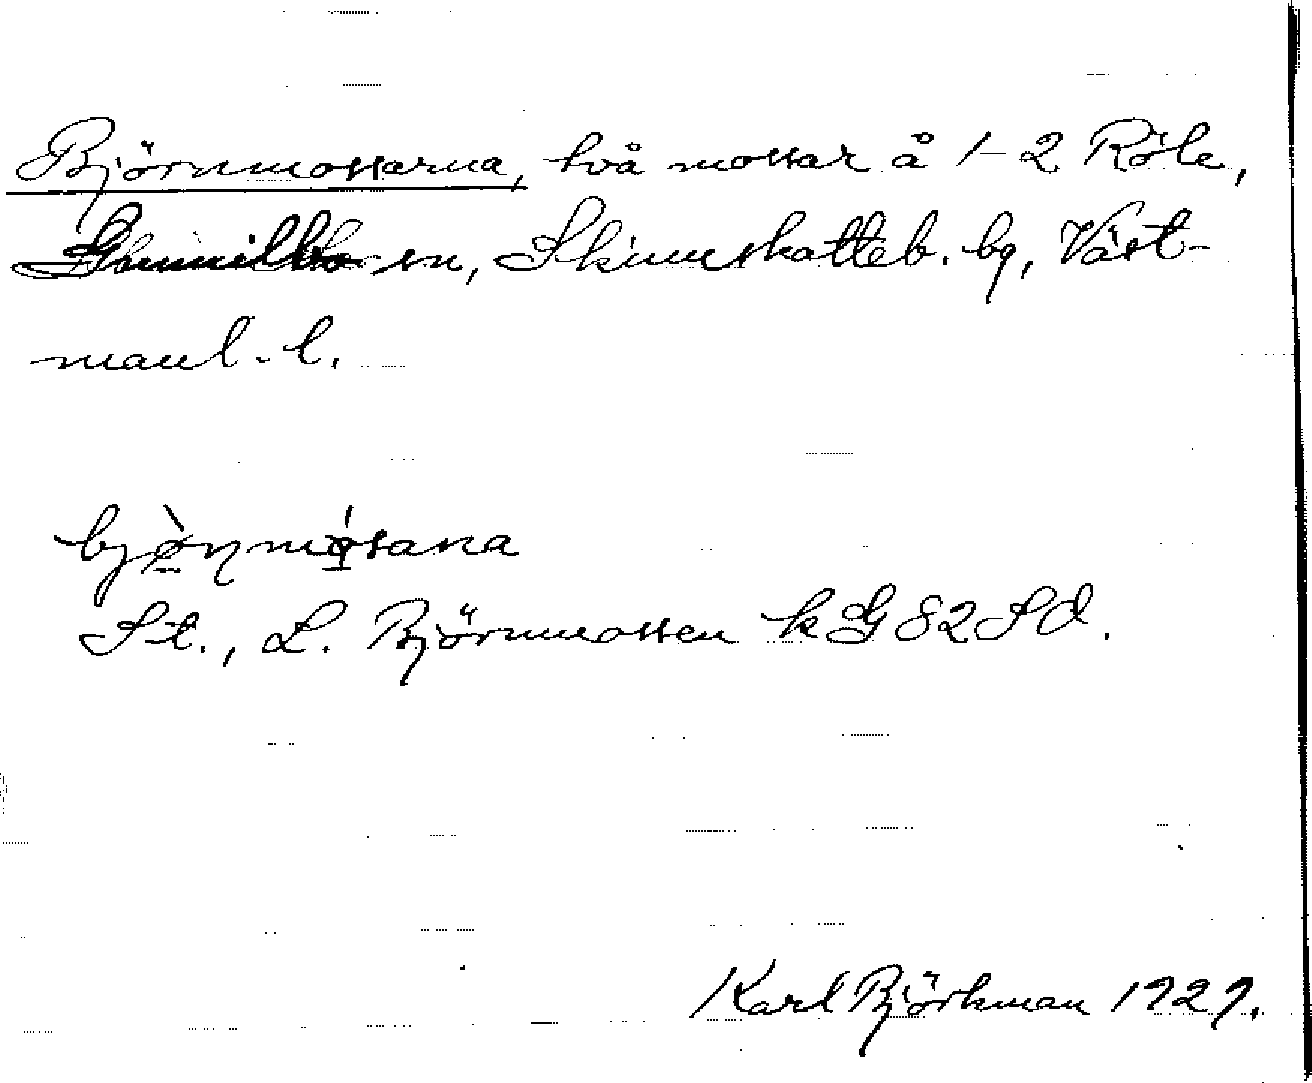 Björnmossarna, två mossar å 1-2 Röle,
Gunnilbo sn, Skinnskatteb. bg, Väst-
manl. l.
St., L. Björnmossen k G 82 SO.
Karl Björkman 1929.